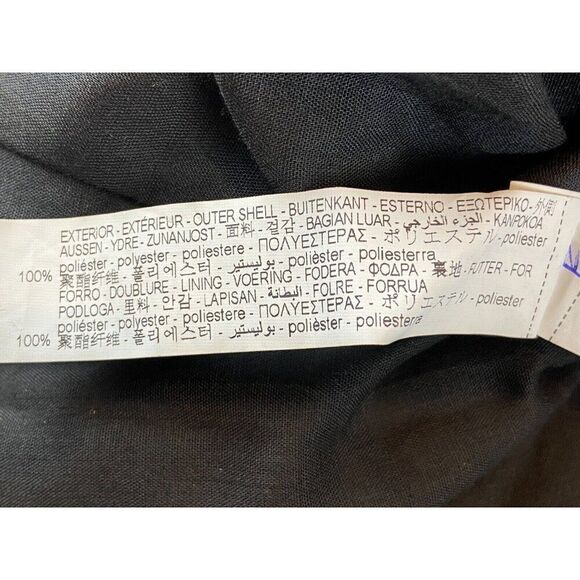 EXTERIOR - EXTÉRIEUR - OUTER SHELL - BUITENKANT - ESTERNO - ΕΞΩΤΕΡΙΚΟ - 外側
AUSSEN - YDRE - ZUNANJOST - 面料 - 겉감 - BAGIAN LUAR - الجزء الخارجي - KANPOKOA
100% poliéster - polyester - poliestere - ΠΟΛΥΕΣΤΕΡΑΣ - ポリエステル - poliester
聚酯纤维 - 폴리에스터 - بوليستير - polièster - poliesterra
FORRO - DOUBLURE - LINING - VOERING - FODERA - ΦΟΔΡΑ - 裏地 - FUTTER - FOR
PODLOGA - 里料 - 안감 - LAPISAN - البطانة - FOLRE - FORRUA
100% poliéster - polyester - poliestere - ΠΟΛΥΕΣΤΕΡΑΣ - ポリエステル - poliester
聚酯纤维 - 폴리에스터 - بوليستير - polièster - poliesterra